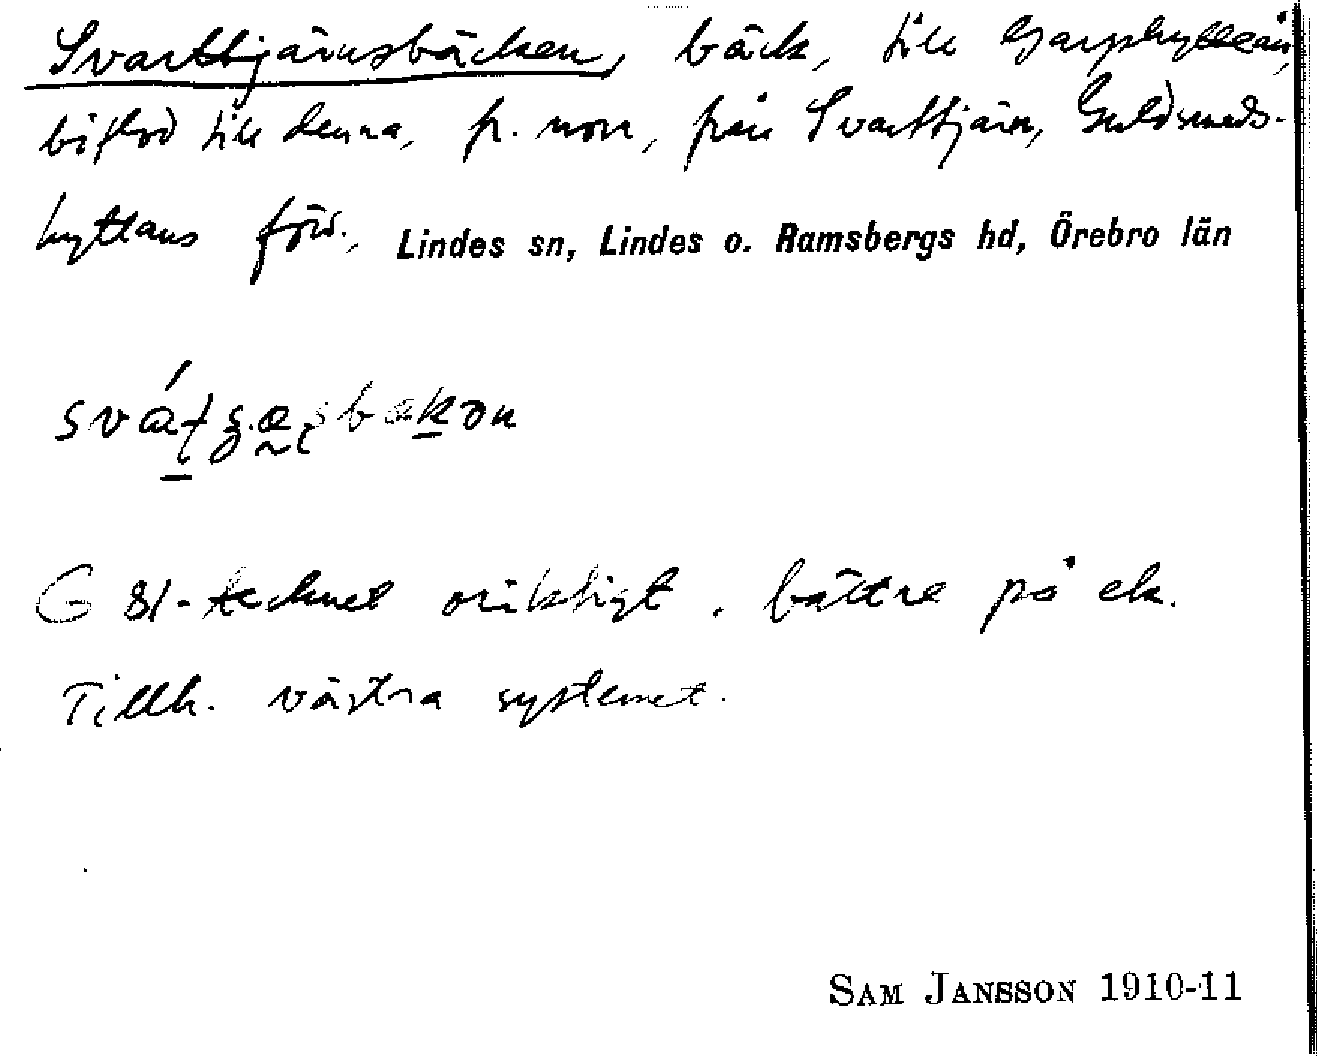 Svarttjärnsbäcken, bäck, till Garphytteån,
biflod till denna, fr. norr, från Svarttjärn, Guldsmeds-
hyttans förs., Lindes sn, Lindes o. Ramsbergs hd, Örebro län
G 81-tecknet oriktigt. bättre på ek.
Tillh. västra systemet.
SAM JANSSON 1910-11